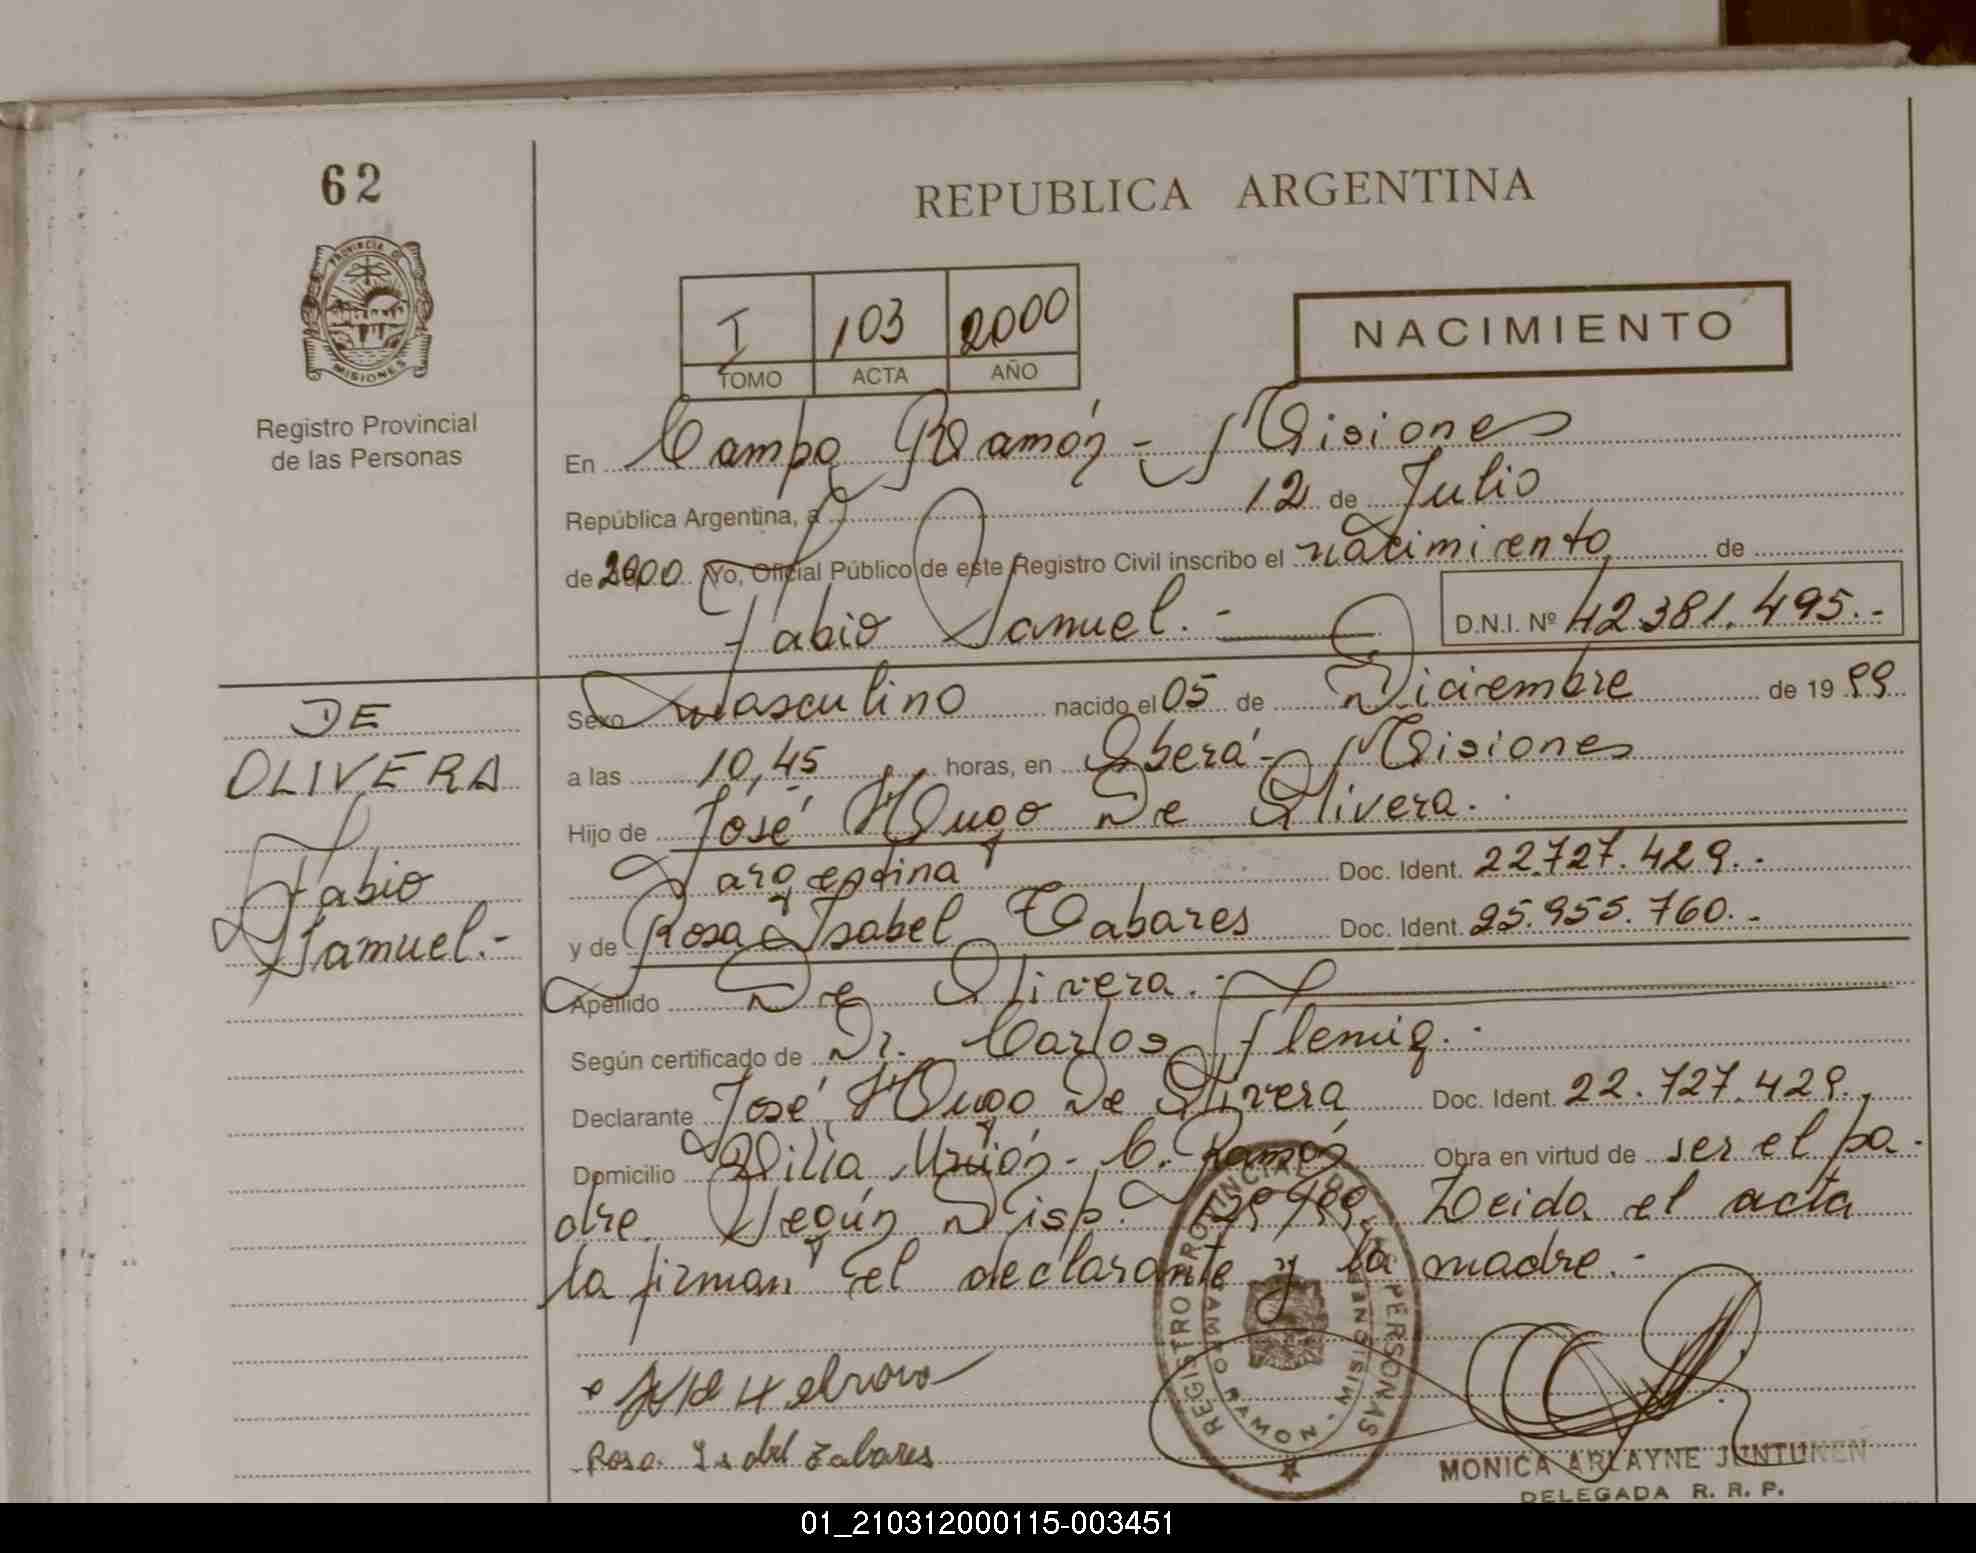 62
REPUBLICA ARGENTINA
PROVINCIA DE
MISIONES
Registro Provincial
de las Personas
I 103 2000
TOMO ACTA AÑO
NACIMIENTO
En Campo Ramón - Misiones
República Argentina, a 12 de Julio
de 2000 Yo, Oficial Público de este Registro Civil inscribo el nacimiento de
Fabio Samuel.- D.N.I. Nº 42.381.495.-
DE
OLIVERA
Fabio
Samuel.-
Sexo Masculino nacido el 05 de Diciembre de 19 99
a las 10,45 horas, en Oberá - Misiones
Hijo de José Hugo De Olivera.
argentina Doc. Ident. 22.727.429.-
y de Rosa Isabel Tabares Doc. Ident. 25.955.760.-
Apellido De Olivera.-
Según certificado de Dr. Carlos Flemig.
Declarante José Hugo De Olivera Doc. Ident. 22.727.429.-
Domicilio Villa Unión - C. Ramón Obra en virtud de ser el pa-
dre. Según Disp. Leida el acta
la firman el declarante y la madre.-
Rosa Isabel Tabares
REGISTRO PROVINCIAL DE LAS PERSONAS
CAMPO RAMON - MISIONES
MONICA ARLAYNE JUNTUNEN
DELEGADA R. R. P.
01_210312000115-003451